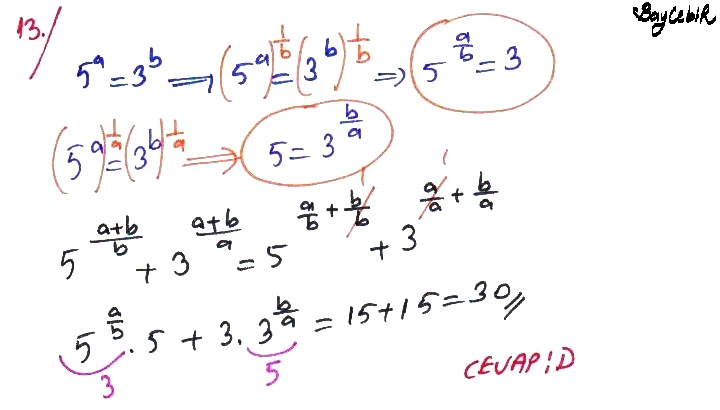 BayCebiR
13.
5^a = 3^b ⟹ (5^a)^(1/b) = (3^b)^(1/b) ⟹ 5^(a/b) = 3
(5^a)^(1/a) = (3^b)^(1/a) ⟹ 5 = 3^(b/a)
5^((a+b)/b) + 3^((a+b)/a) = 5^(a/b + b/b) + 3^(a/a + b/a)
1 1
5^(a/b) . 5 + 3 . 3^(b/a) = 15 + 15 = 30 //
3 5
CEVAP : D